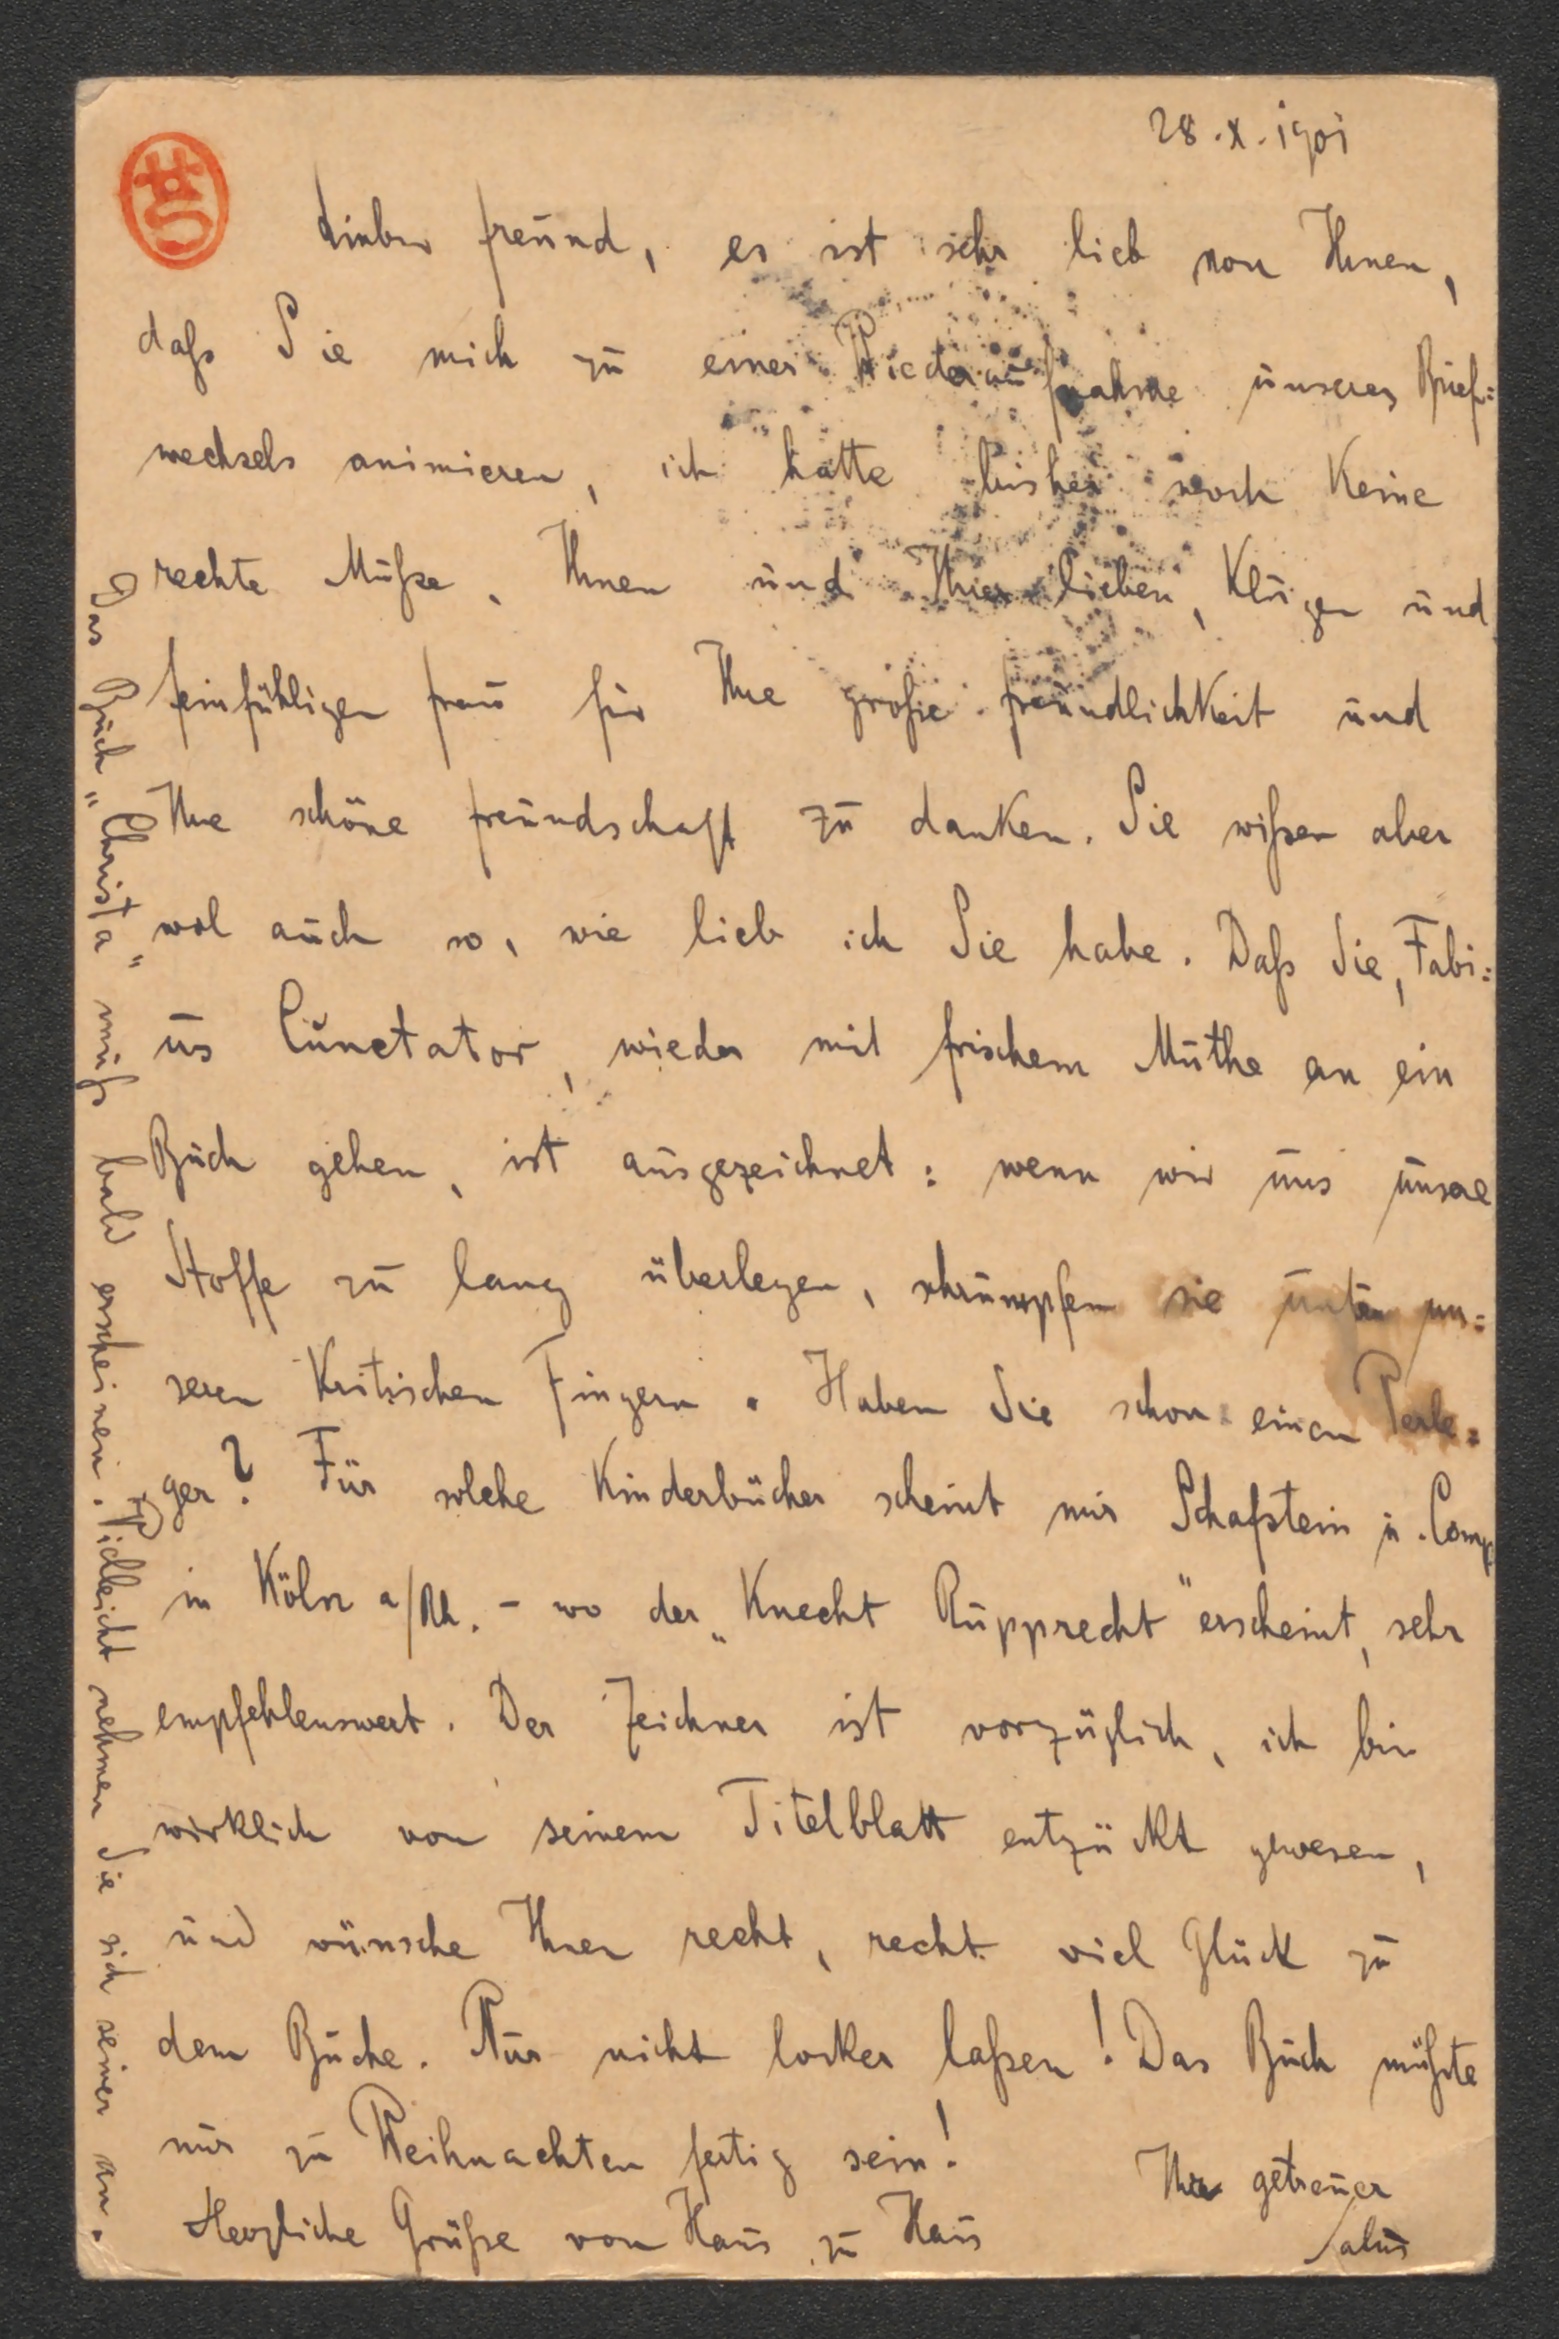 28.X.1901
Lieber Freund, es ist sehr lieb von Ihnen,
daß Sie mich zu einer Wiederaufnahme unseres Brief=
wechsels animieren, ich hatte bisher noch keine
rechte Muße, Ihnen und Ihrer lieben, klugen und
feinfühligen Frau für Ihre große Freundlichkeit und
Ihre schöne Freundschaft zu danken. Sie wißen aber
wol auch so, wie lieb ich Sie habe. Daß Sie, Fabi=
us Cunctator, wieder mit frischem Muthe an ein
Buch gehen, ist ausgezeichnet: wenn wir uns unsere
Stoffe zu lang überlegen, schrumpfen sie unter un=
seren kritischen Fingern. Haben Sie schon einen Verle=
ger? Für solche Kinderbücher scheint mir Schafstein u. Comp.
in Köln a/Rh. - wo der „Knecht Rupprecht" erscheint, sehr
empfehlenswert. Der Zeichner ist vorzüglich, ich bin
wirklich von seinem Titelblatt entzückt gewesen,
und wünsche Ihnen recht, recht viel Glück zu
dem Buche. Nur nicht locker laßen! Das Buch müßte
nur zu Weihnachten fertig sein!
Ihr getreuer
Herzliche Grüße von Haus zu Haus
Salus
Das Buch „Christa" muß bald erscheinen. Vielleicht nehmen Sie sich seiner an.